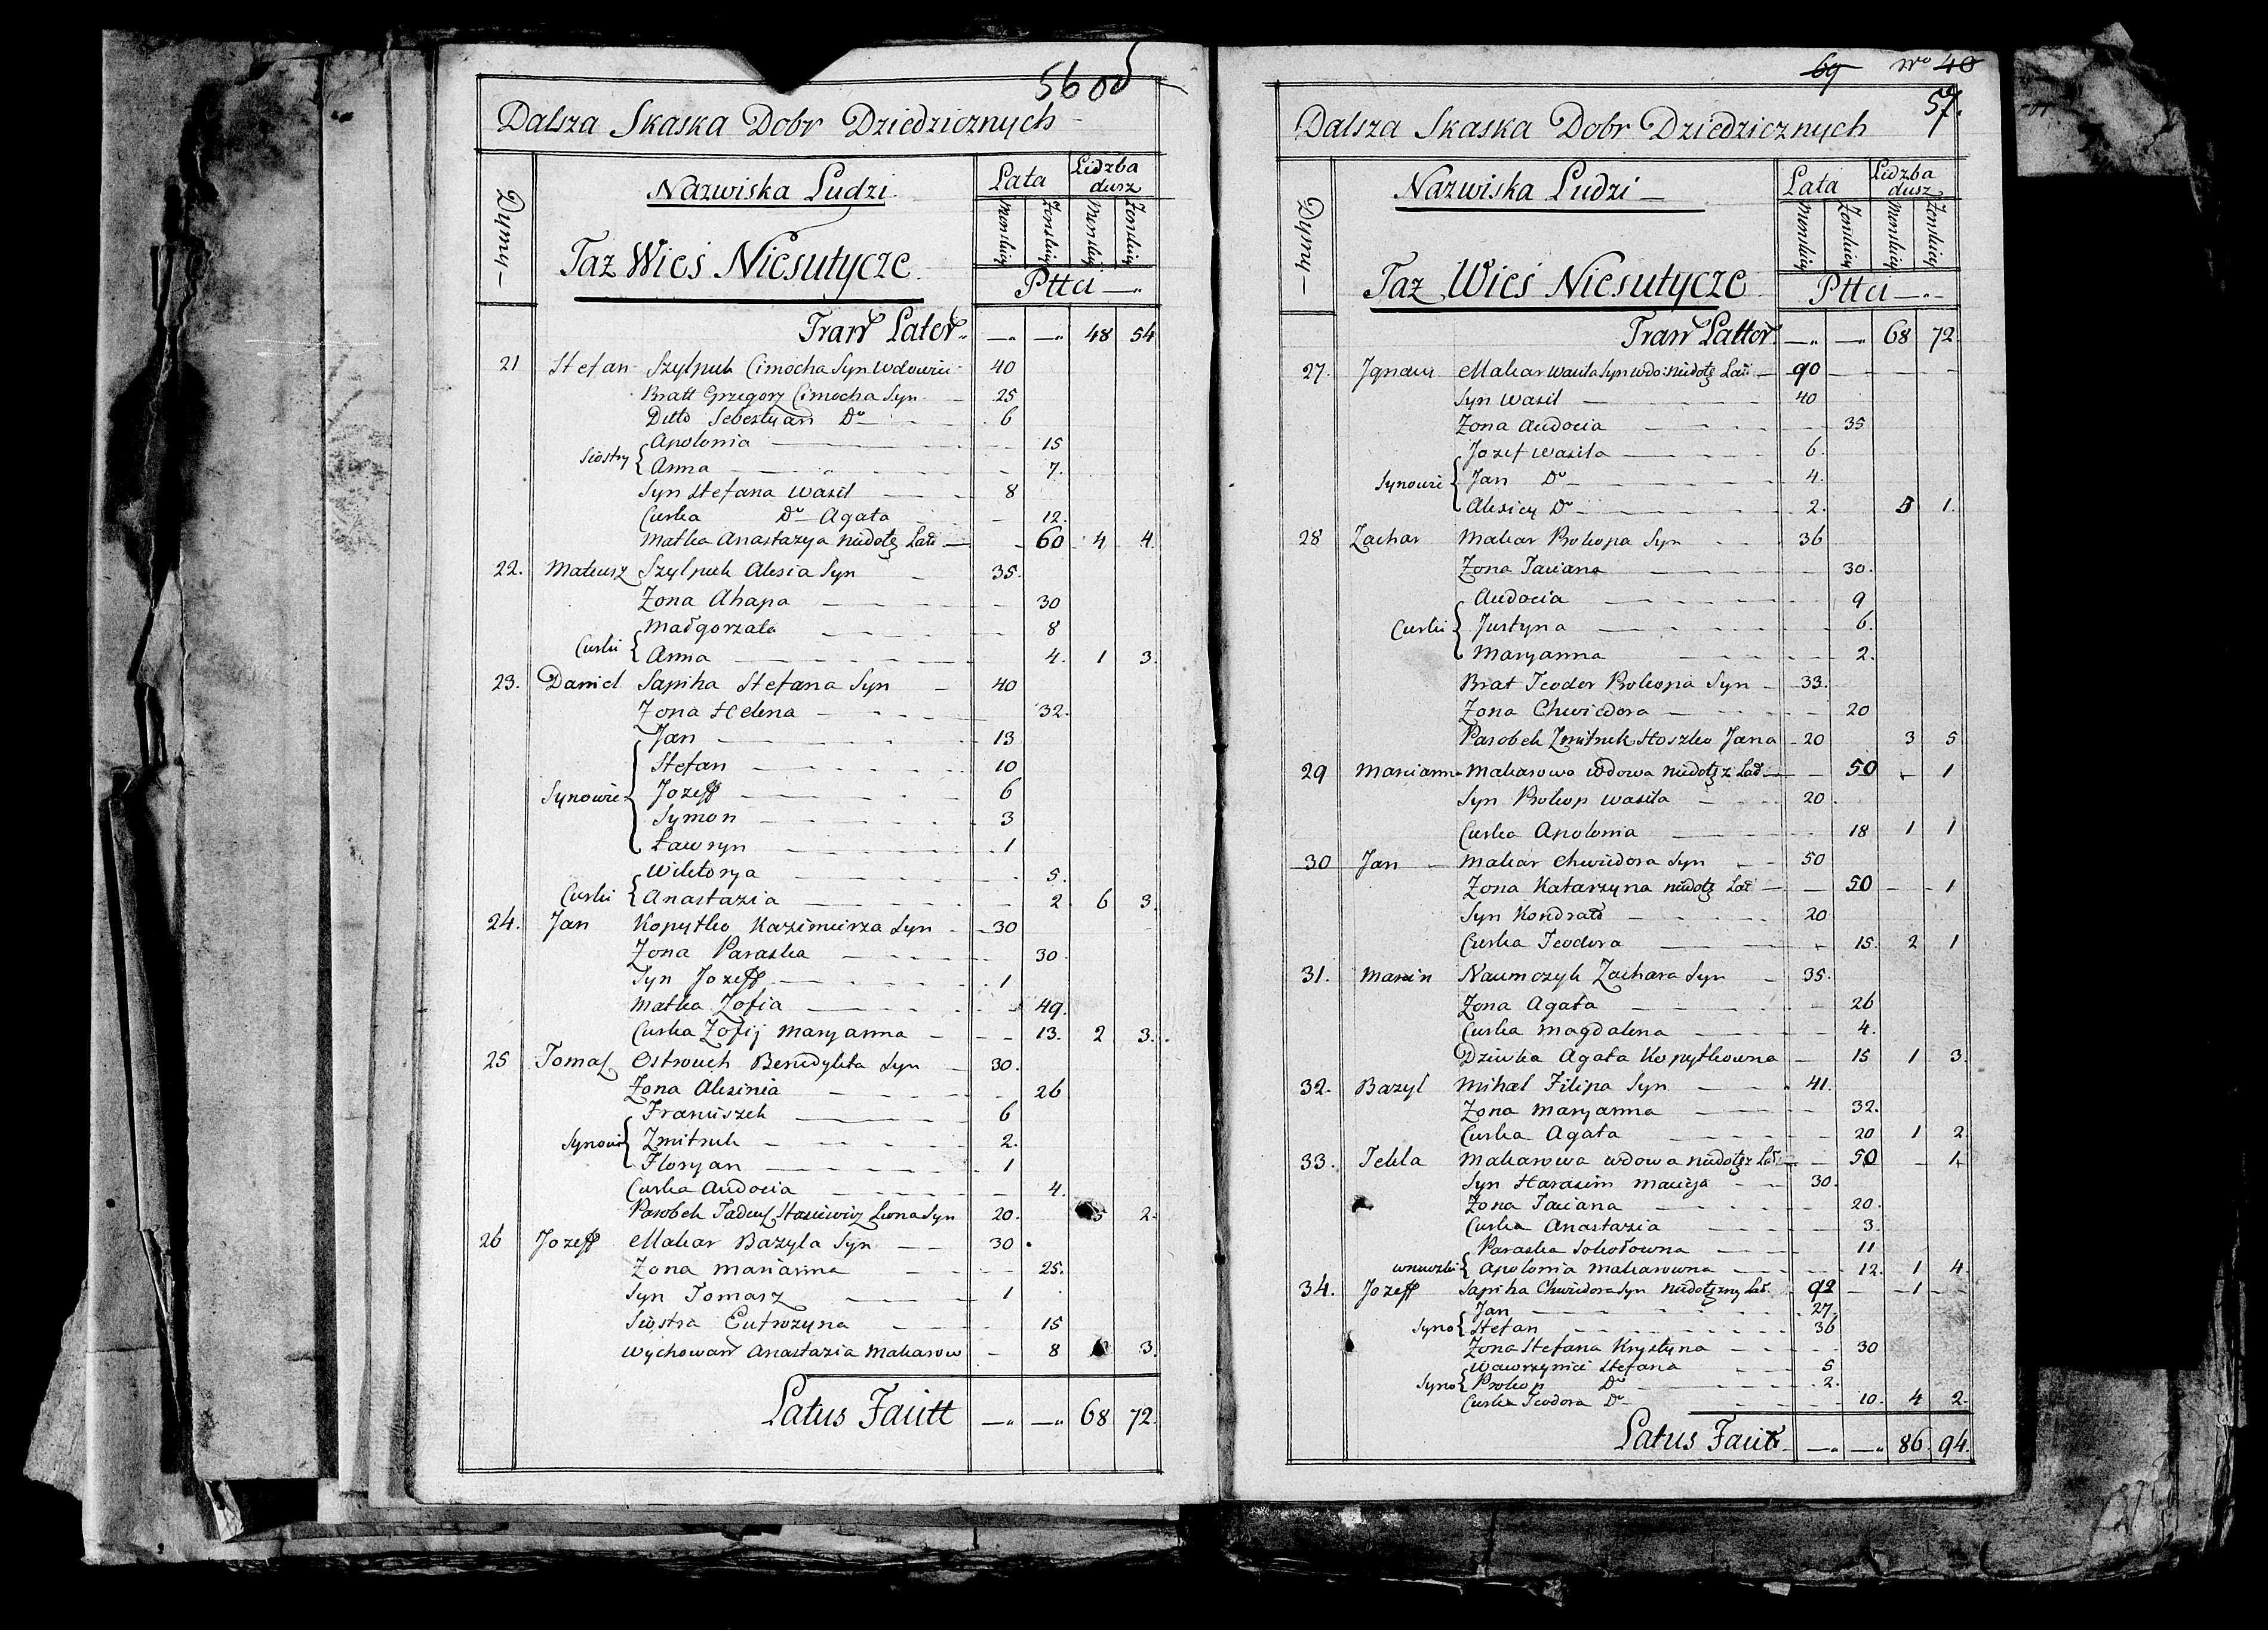 56 od
Dalsza Skaska Dobr Dziedzicznych
Dymy Nazwiska Ludzi Lata Lidzba dusz
Męskiey Żeńskiey Męskiey Żeńskiey
Taz Wieś Niesutycze
Pttci
Tran Lator 48 54
21 Stefan Szylpuk Cimocha Syn wdowiec 40
Bratt Grzegorz Cimocha Syn 25
Ditto Sebestyan Do 6
Siostry Apolonia 15
Anna 7.
Syn Stefana Wasil 8
Curka Do Agata 12.
Matka Anastazya niedołę Lati 60 4 4.
22. Mateusz Szylpuk Alesia Syn 35.
Żona Ahapa 30
Curki Małgorzata 8
Anna 4. 1 3.
23. Daniel Sapiha Stefana Syn 40
Żona Helena 32.
Synowie Jan 13
Stefan 10
Jozeff 6
Symon 3
Ławryn 1
Curki Wiktorya 5.
Anastazia 2 6 3.
24. Jan Kopytko Kazimierza Syn 30
Żona Paraska 30.
Syn Jozeff 1
Matka Zofia 49.
Curka Zofij Maryanna 13. 2 3.
25 Tomas Ostrouch Benedykta Syn 30.
Żona Alesinia 26
Synowie Franciszek 6
Zmitruk 2.
Floryan 1
Curka Audocia 4.
Parobek Tadeus Stasiewicz Leona Syn 20. 5 2.
26 Jozeff Makar Bazyla Syn 30
Żona Marianna 25.
Syn Tomasz 1
Siostra Eufrozyna 15
Wychowan Anastazia Makarow 8 3.
Latus Facitt 68 72.
69 No 40
57.
Dalsza Skaska Dobr Dziedzicznych
Dymy Nazwiska Ludzi Lata Lidzba dusz
Męskiey Żeńskiey Męskiey Żeńskiey
Taz Wieś Niesutycze
Pttci
Tran Lattor 68 72
27. Jgnacy Makar Wasila Syn wdo: niedołę Lati 90
Syn Wasil 40
Żona Audocia 35
Synowie Jozef Wasila 6.
Jan Do 4.
Alexiey Do 2. 5 1.
28 Zachar Makar Prokopa Syn 36
Żona Taciana 30.
Curki Audocia 9
Justyna 6.
Maryanna 2.
Brat Teodor Prokopa Syn 33.
Żona Chwiedora 20
Parobek Zmitruk Stoszko Jana 20 3 5
29 Marianna Makarowa Wdowa niedołęz Lat 50 1
Syn Prokop Wasila 20
Curka Apolonia 18 1 1
30 Jan Makar Chwiedora Syn 50
Żona Katarzyna niedołę Lat 50 1
Syn Kondrat 20
Curka Teodora 15. 2 1
31. Marcin Naumczyk Zachara Syn 35.
Żona Agata 26
Curka Magdalena 4.
Dziwka Agata Kopytkowna 15 1 3
32. Bazyl Mihal Filipa Syn 41.
Żona Maryanna 32.
Curka Agata 20 1 2
33. Tekla Makarowa wdowa niedołęz Lat 50 1.
Syn Harasim Macieja 30.
Żona Taciana 20.
Curka Anastazia 3
wnuczki Paraska Sokołowna 11
Apolonia Makarowna 12. 1 4.
34. Jozeff Sapiha Chwiedora Syn niedołęzny Lat. 92 1
Syno Jan 27.
Stefan 36
Żona Stefana Krystyna 30
Syno Wawrzyniec Stefana 5
Prokop Do 2.
Curka Teodora Do 10. 4 2.
Latus Facitt 86 94.